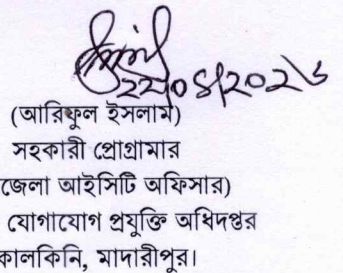 ২২/০৪/২০২৬
(আরিফুল ইসলাম)
সহকারী প্রোগ্রামার
জেলা আইসিটি অফিসার)
যোগাযোগ প্রযুক্তি অধিদপ্তর
কালকিনি, মাদারীপুর।